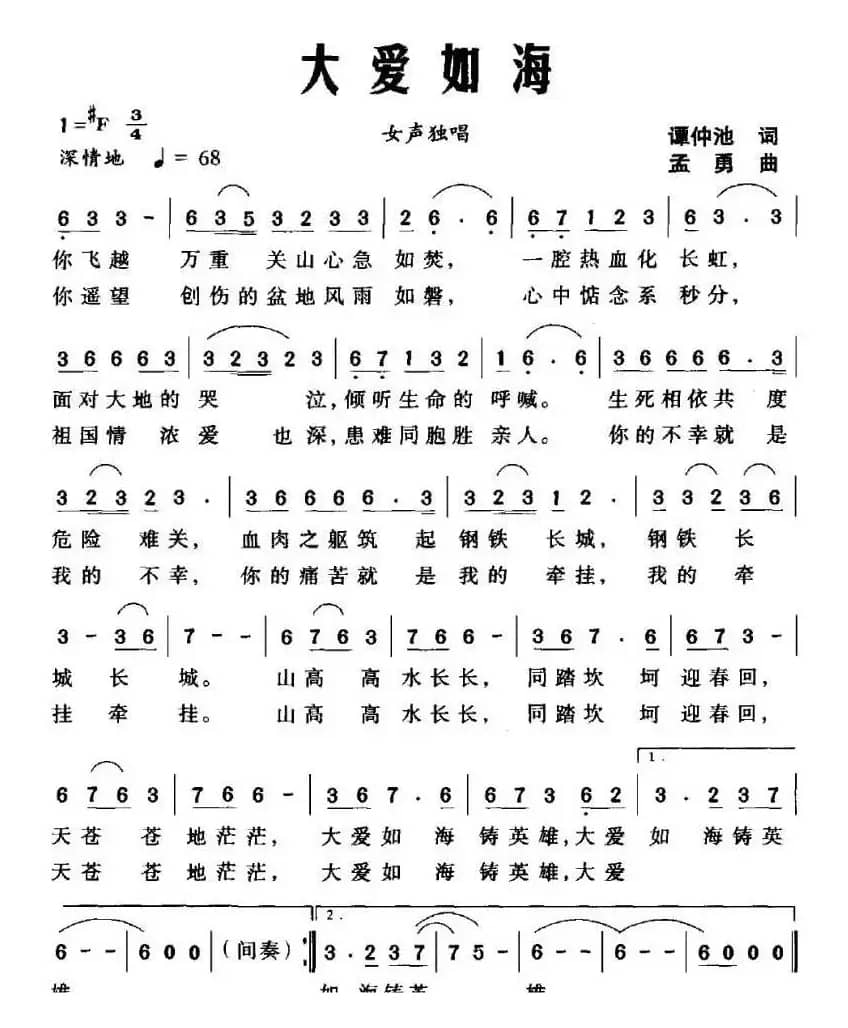 大爱如海
1=#F 3/4
女声独唱
谭仲池 词
深情地 ♩= 68
孟勇 曲
6 3 3 - | 6 3 5 3 2 3 3 | 2 6 . 6 | 6 7 1 2 3 | 6 3 . 3 |
你飞越 万重 关山心急 如焚， 一腔热血化 长虹，
你遥望 创伤的盆地风雨 如磐， 心中惦念系 秒分，
3 6 6 6 6 3 | 3 2 3 2 3 | 6 7 1 3 2 | 1 6 . 6 | 3 6 6 6 6 . 3 |
面对大地的 哭 泣，倾听生命的 呼喊。 生死相依共 度
祖国情 浓爱 也深，患难同胞胜 亲人。 你的不幸就 是
3 2 3 2 3 . | 3 6 6 6 6 . 3 | 3 2 3 1 2 . | 3 3 2 3 6 |
危险 难关， 血肉之躯筑 起 钢铁 长城， 钢铁 长
我的 不幸， 你的痛苦就 是 我的 牵挂， 我的 牵
3 - 3 6 | 7 - - | 6 7 6 3 | 7 6 6 - | 3 6 7 . 6 | 6 7 3 - |
城 长 城。 山高 高 水长长， 同踏坎 坷 迎春回，
挂 牵 挂。 山高 高 水长长， 同踏坎 坷 迎春回，
6 7 6 3 | 7 6 6 - | 3 6 7 . 6 | 6 7 3 6 2 | 1. 3 . 2 3 7 |
天苍 苍 地茫茫， 大爱如 海 铸英雄，大爱 如 海铸英
天苍 苍 地茫茫， 大爱如 海 铸英雄，大爱
6 - - | 6 0 0 | (间奏) :‖ 2. 3 . 2 3 7 | 7 5 - | 6 - - | 6 - - | 6 0 0 0 ‖
雄 如 海铸英 雄